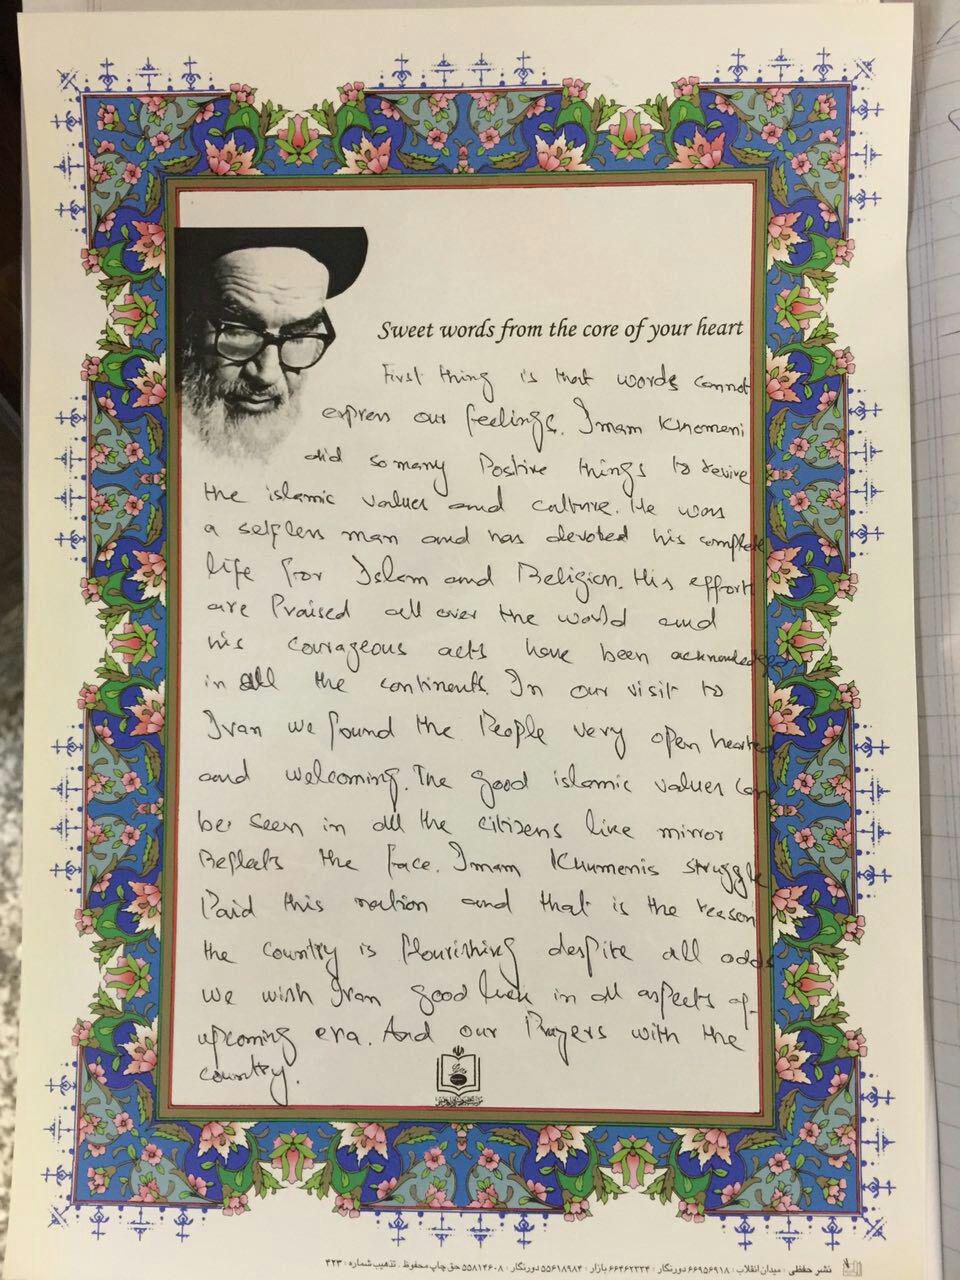 Sweet words from the core of your heart
First thing is that words cannot
express our feelings. Imam Khomeni
did so many Postive things to revive
the islamic values and culture. He was
a selfless man and has devoted his complete
life for Islam and Religion. His efforts
are Praised all over the world and
his courageous acts have been acknowledged
in all the continents. In our visit to
Iran we found the People very open hearted
and welcoming. The good islamic values can
be seen in all the citizens like mirror
Reflects the face. Imam Khumenis struggle
Paid this nation and that is the reason
the country is flourishing despite all odds
we wish Iran good luck in all aspects of
upcoming era. And our Prayers with the
country.
نشر حفظی : میدان انقلاب : ۶۶۹۵۶۹۱۸ دورنگار : ۶۶۴۶۲۳۳۴ بازار : ۵۵۶۱۸۹۸۴ دورنگار : ۵۵۸۱۴۶۰۸ حق چاپ محفوظ . تذهیب شماره : ۴۲۳